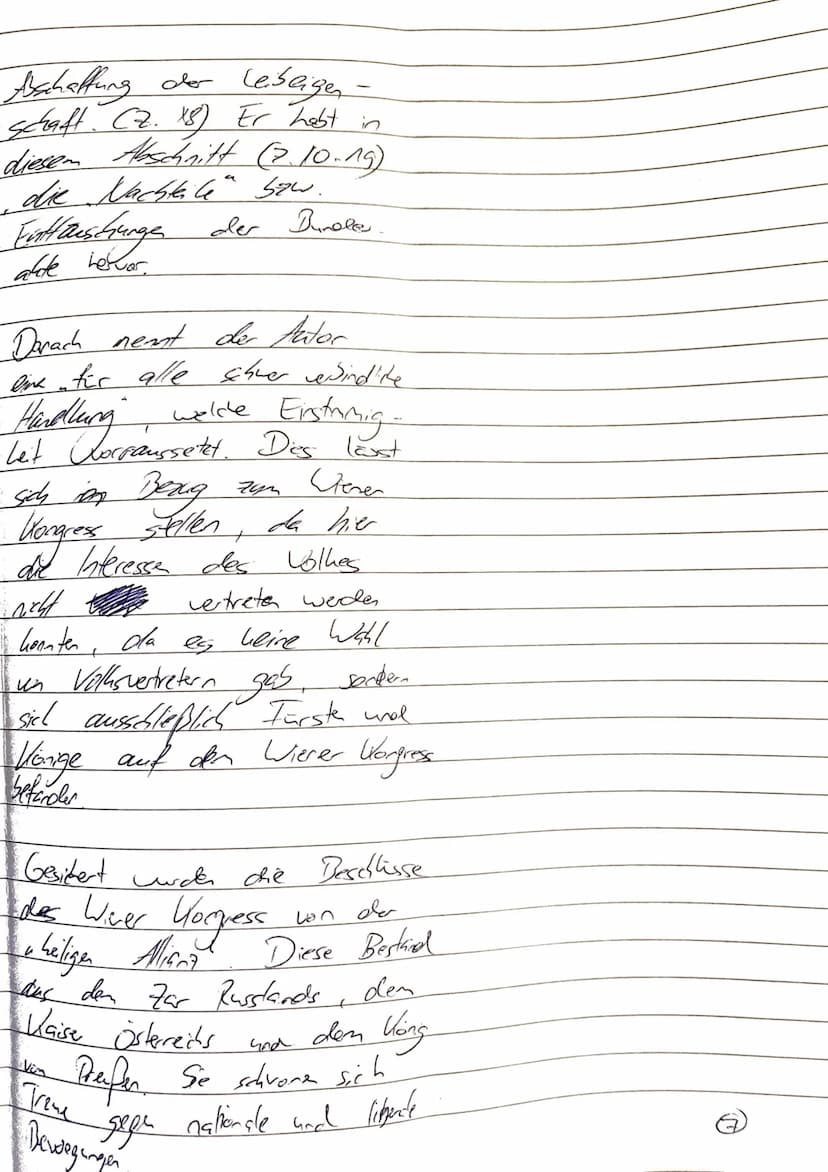 Abschaffung der Leibeigen-
schaft. (Z. 18) Er hebt in
diesem Abschnitt (Z. 10-19)
die "Nachteile" bzw.
Enttäuschungen der Bundes-
akte hervor.
Danach nennt der Autor
eine "für alle schwer verbindliche
Handlung", welche Einstimmig-
keit vorraussetzt. Dies lässt
sich in Bezug zum Wiener
Kongress stellen, da hier
die Interessen des Volkes
nicht vertreten werden
konnten, da es keine Wahl
von Volksvertretern gab, sondern
sich ausschließlich Fürsten und
Könige auf dem Wiener Kongress
befanden.
Gesichert wurden die Beschlüsse
des Wiener Kongress von der
"heiligen Allianz". Diese Bestand
aus dem Zar Russlands, dem
Kaiser Österreichs und dem König
von Preußen. Sie schworen sich
Treue gegen nationale und liberale
Bewegungen
7